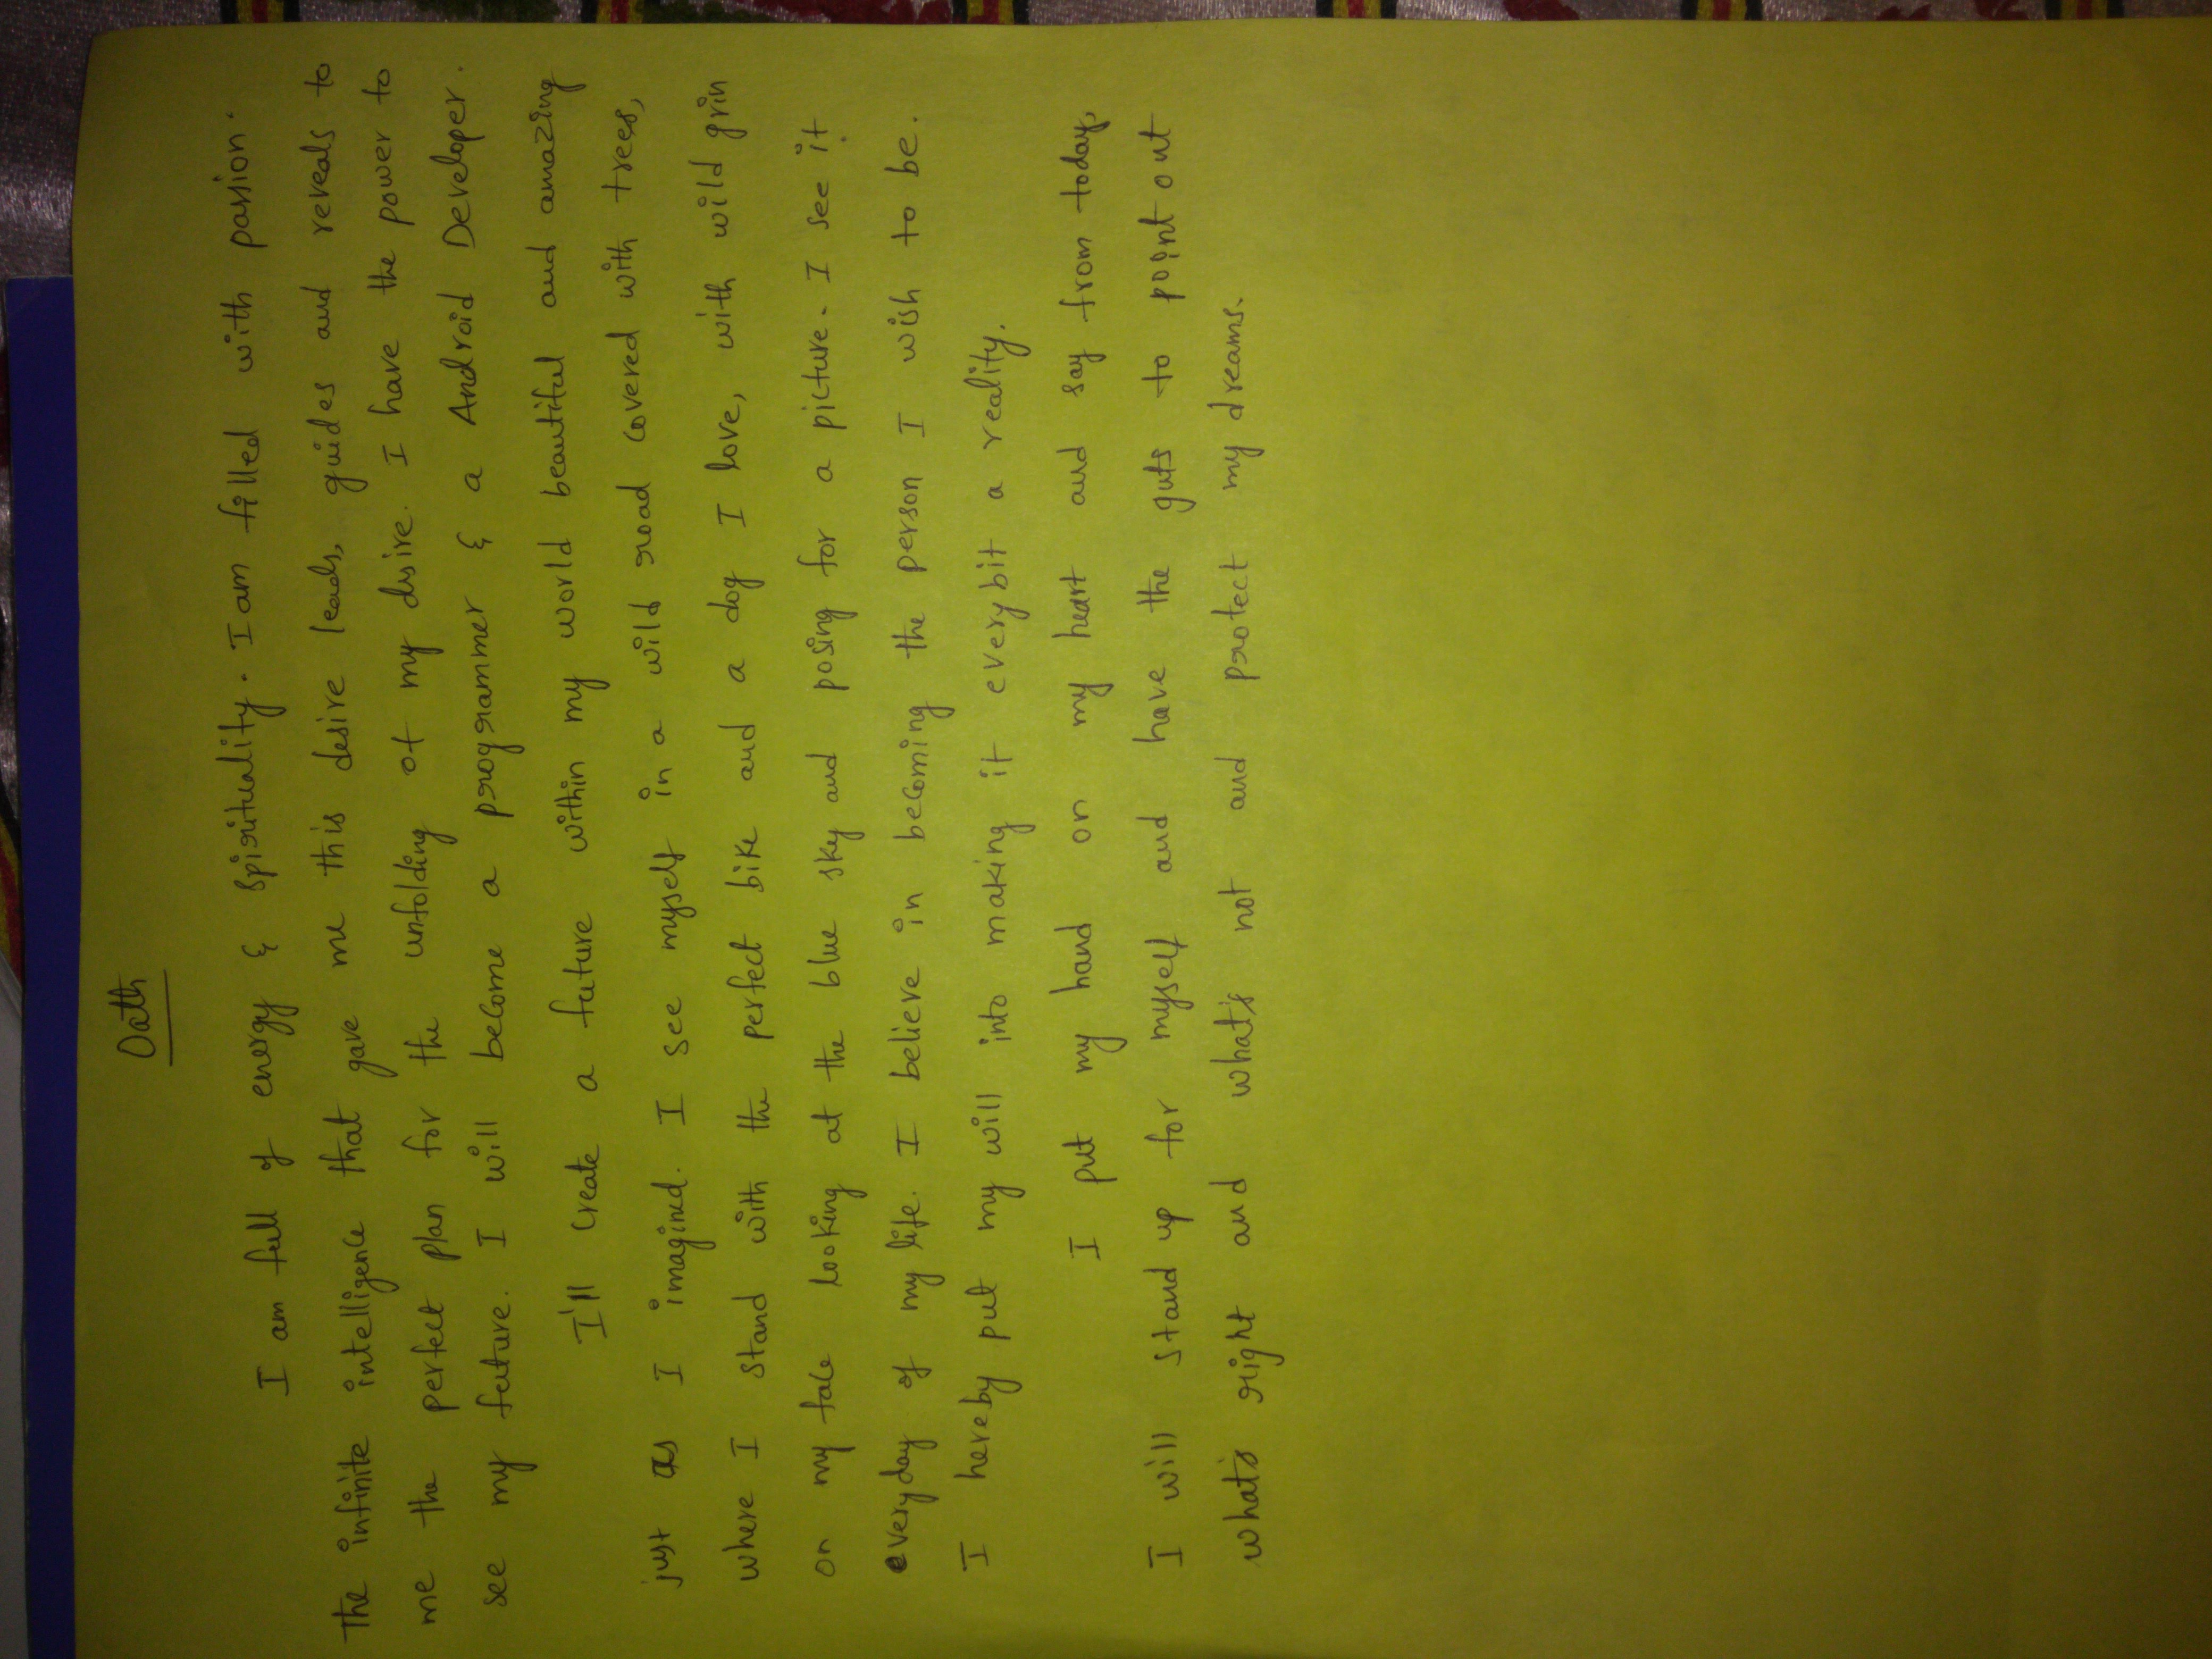 Oath
I am full of energy & spirituality. I am filled with passion.
The infinite intelligence that gave me this desire leads, guides and reveals to
me the perfect plan for the unfolding of my desire. I have the power to
see my future. I will become a programmer & a Android Developer.
I'll create a future within my world beautiful and amazing
just as I imagined. I see myself in a wild road covered with trees,
where I stand with the perfect bike and a dog I love, with wild grin
on my face looking at the blue sky and posing for a picture. I see it
everyday of my life. I believe in becoming the person I wish to be.
I hereby put my will into making it everybit a reality.
I put my hand on my heart and say from today,
I will stand up for myself and have the guts to point out
what's right and what's not and protect my dreams.